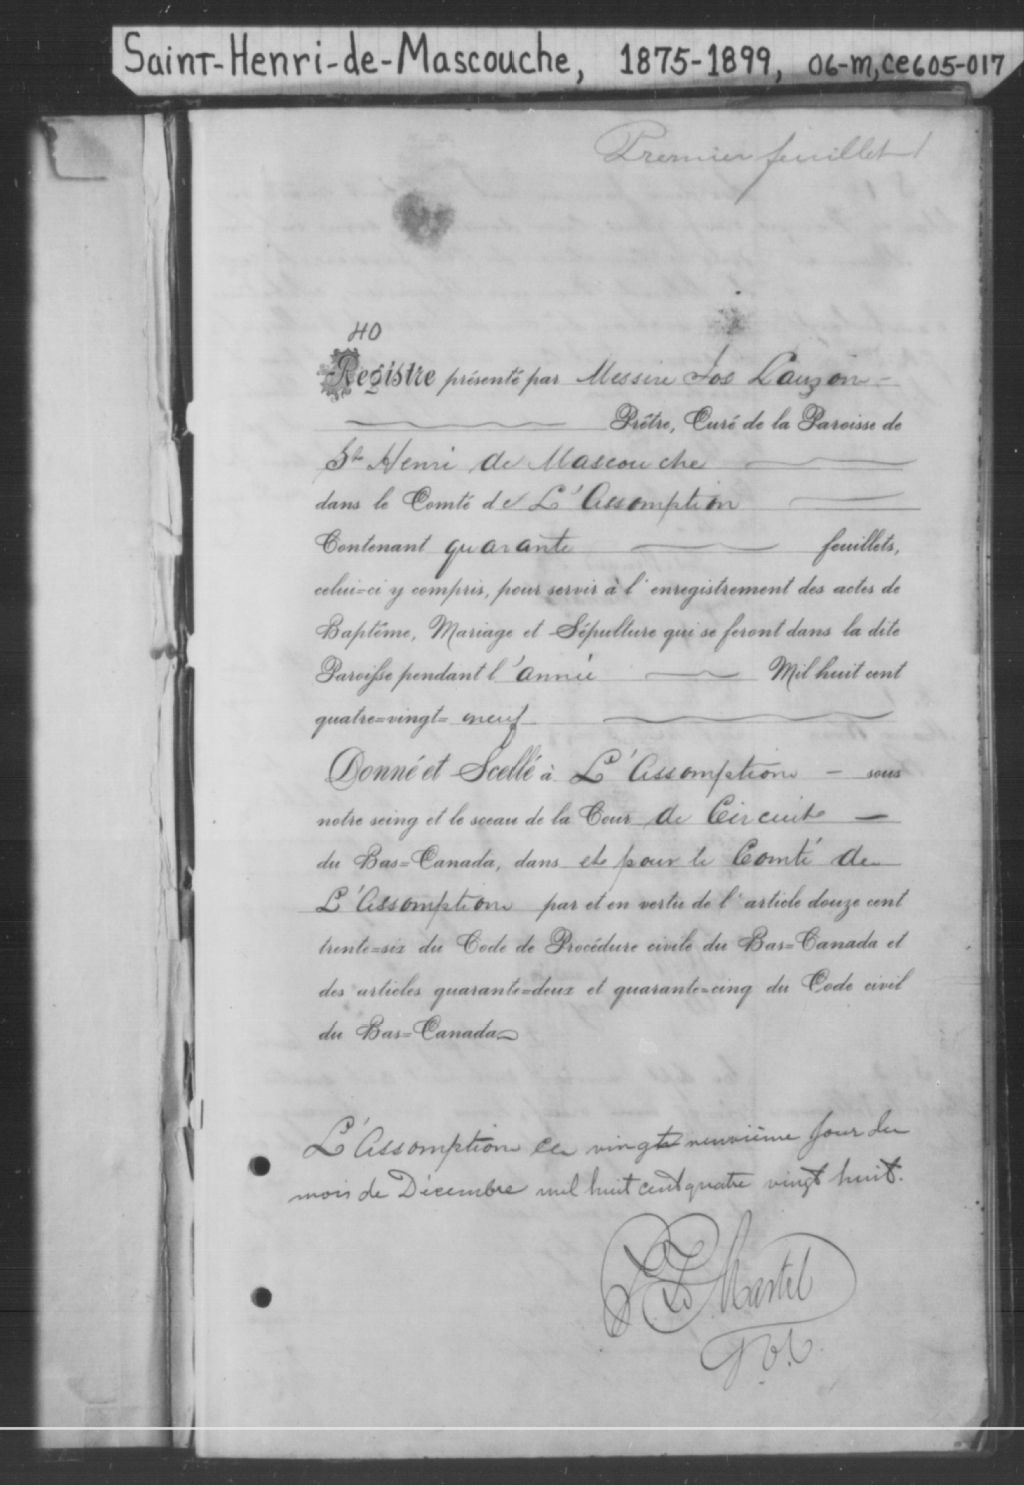 Saint-Henri-de-Mascouche, 1875-1899, 06-M, CE605-017
Premier feuillet
40
Registre présenté par Messire Jos Lauzon
Prêtre, Curé de la Paroisse de
St Henri de Mascouche
dans le Comté de L'Assomption
Contenant quarante feuillets,
celui=ci y compris, pour servir à l'enregistrement des actes de
Baptême, Mariage et Sépulture qui se feront dans la dite
Paroisse pendant l'année Mil huit cent
quatre=vingt= neuf
Donné et Scellé à L'Assomption - sous
notre seing et le sceau de la Cour de Circuit
du Bas=Canada, dans et pour le Comté de
L'Assomption par et en vertu de l'article douze cent
trente=six du Code de Procédure civile du Bas=Canada et
des articles quarante=deux et quarante=cinq du Code civil
du Bas=Canada
L'Assomption ce vingt neuvième jour du
mois de Décembre mil huit cent quatre vingt huit.
Martel